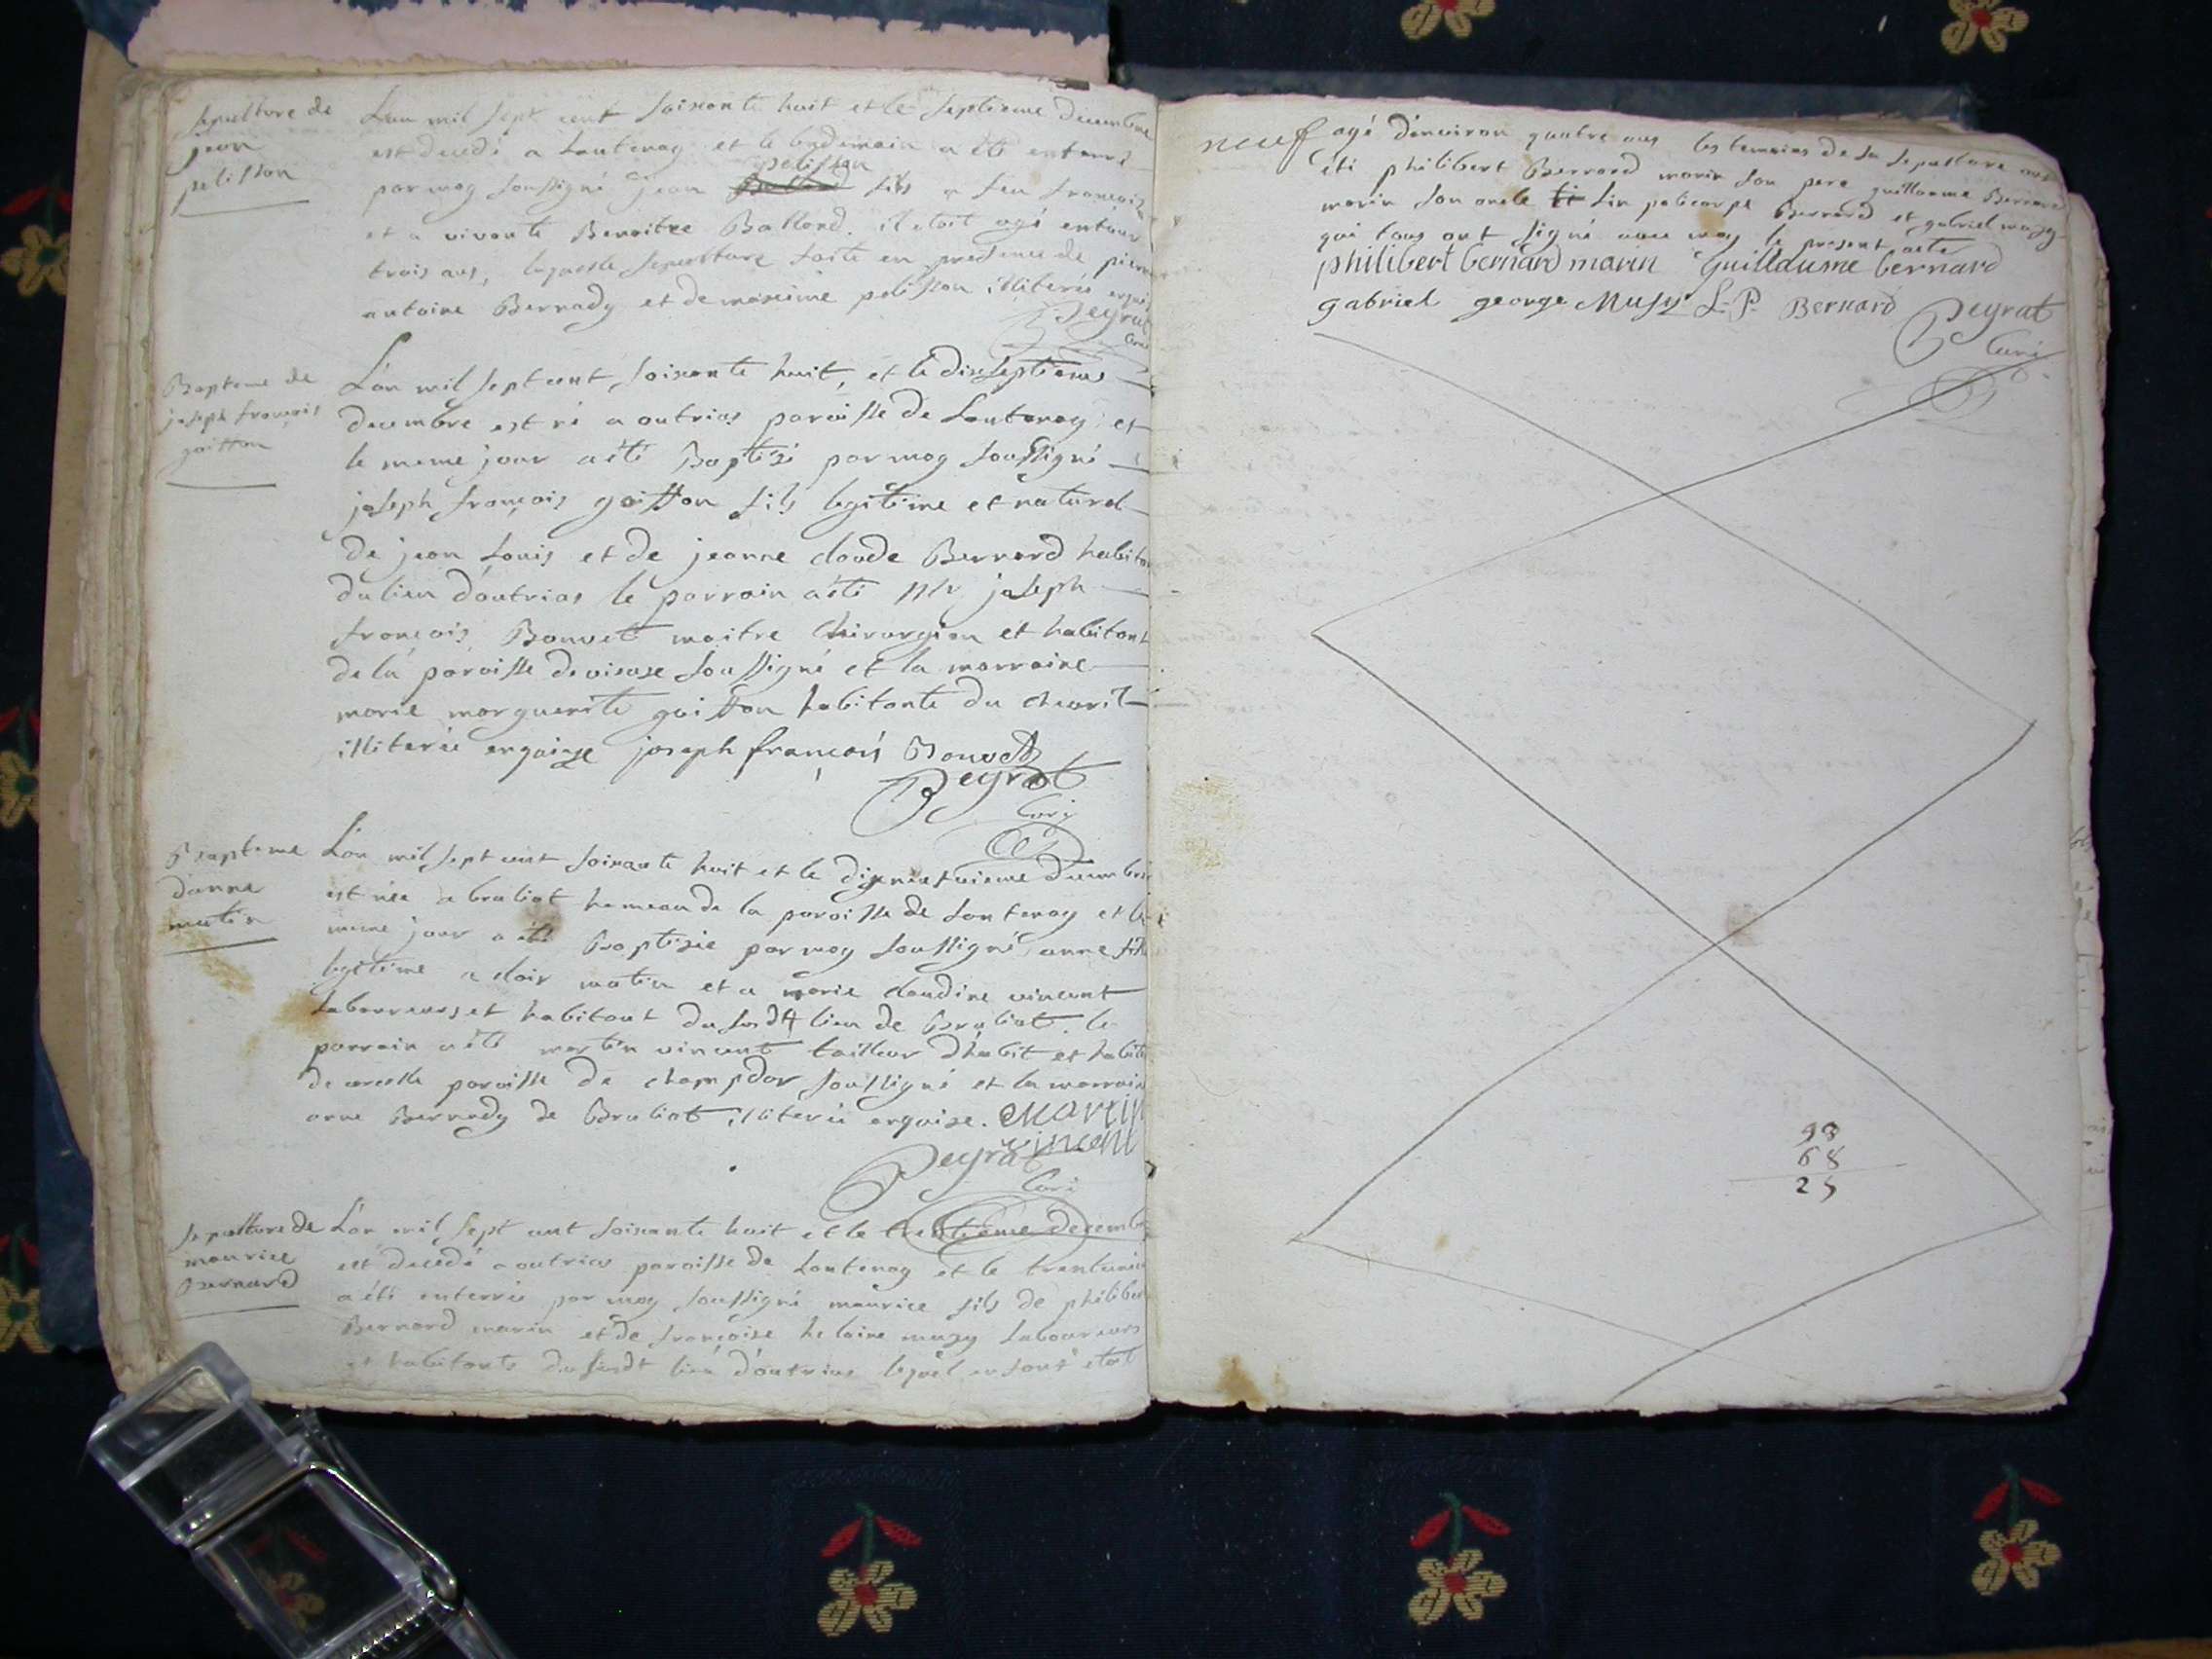 Sepulture de
jean
pelisson
L'an mil sept cent soixante huit et le septieme decembre
est decedé a Lantenay et le lendemain a été enterré
par moy soussigné jean pelisson fils a feu françois
et a vivante Benoitte Balland. il etoit agé entour
trois ans, laquelle sepulture faite en presence de pierre
antoine Bernady et de maxime pelisson illiterés enquis
Peyrat
Curé
Bapteme de
joseph françois
goiffon
L'an mil sept cent soixante huit, et le dixseptieme
decembre est né a outrias paroisse de Lantenay et
le meme jour a été Baptisé par moy soussigné
joseph françois goiffon fils legitime et naturel
de jean Louis et de jeanne claude Bernard habitans
du lieu d'outrias le parrain a été Mr joseph
françois Bonvet maitre chirurgien et habitant
de la paroisse de vieuse soussigné et la marraine
marie marguerite goiffon habitante du chevril
illiterée enquise joseph françois Bonvet
Peyrat
Curé
Bapteme
d'anne
matin
L'an mil sept cent soixante huit et le dixneufvieme decembre
est née a braliat hameau de la paroisse de Lantenay et le
meme jour a été Baptisée par moy soussigné anne fille
legitime a clair matin et a marie claudine vincent
laboureurs et habitant du susdt lieu de Braliat. le
parrain a été martin vincent tailleur d'habit et habitt
de paroisse de champdor soussigné et la marraine
anne Bernady de Braliat illiterée enquise. Martin
vincent
Peyrat
Curé
Sepulture de
maurice
Bernard
L'an mil sept cent soixante huit et le trentieme decembre
est decedé a outrias paroisse de Lantenay et le trenteunie
a été enterré par moy soussigné maurice fils de philibert
Bernard marin et de françoise helaine muzy laboureurs
et habitants du susdt lieu d'outrias lequel enfant etoit
neuf agé d'environ quatre ans les temoins de sa sepulture ont
été philibert Bernard marin son pere guillaume Bernard
marin son oncle Sr policarpe Bernard et gabriel muzy
qui tous ont signé avec moy le present acte
philibert bernard marin guillaume bernard
gabriel george Musy L. P. Bernard Peyrat
Curé
93
68
25